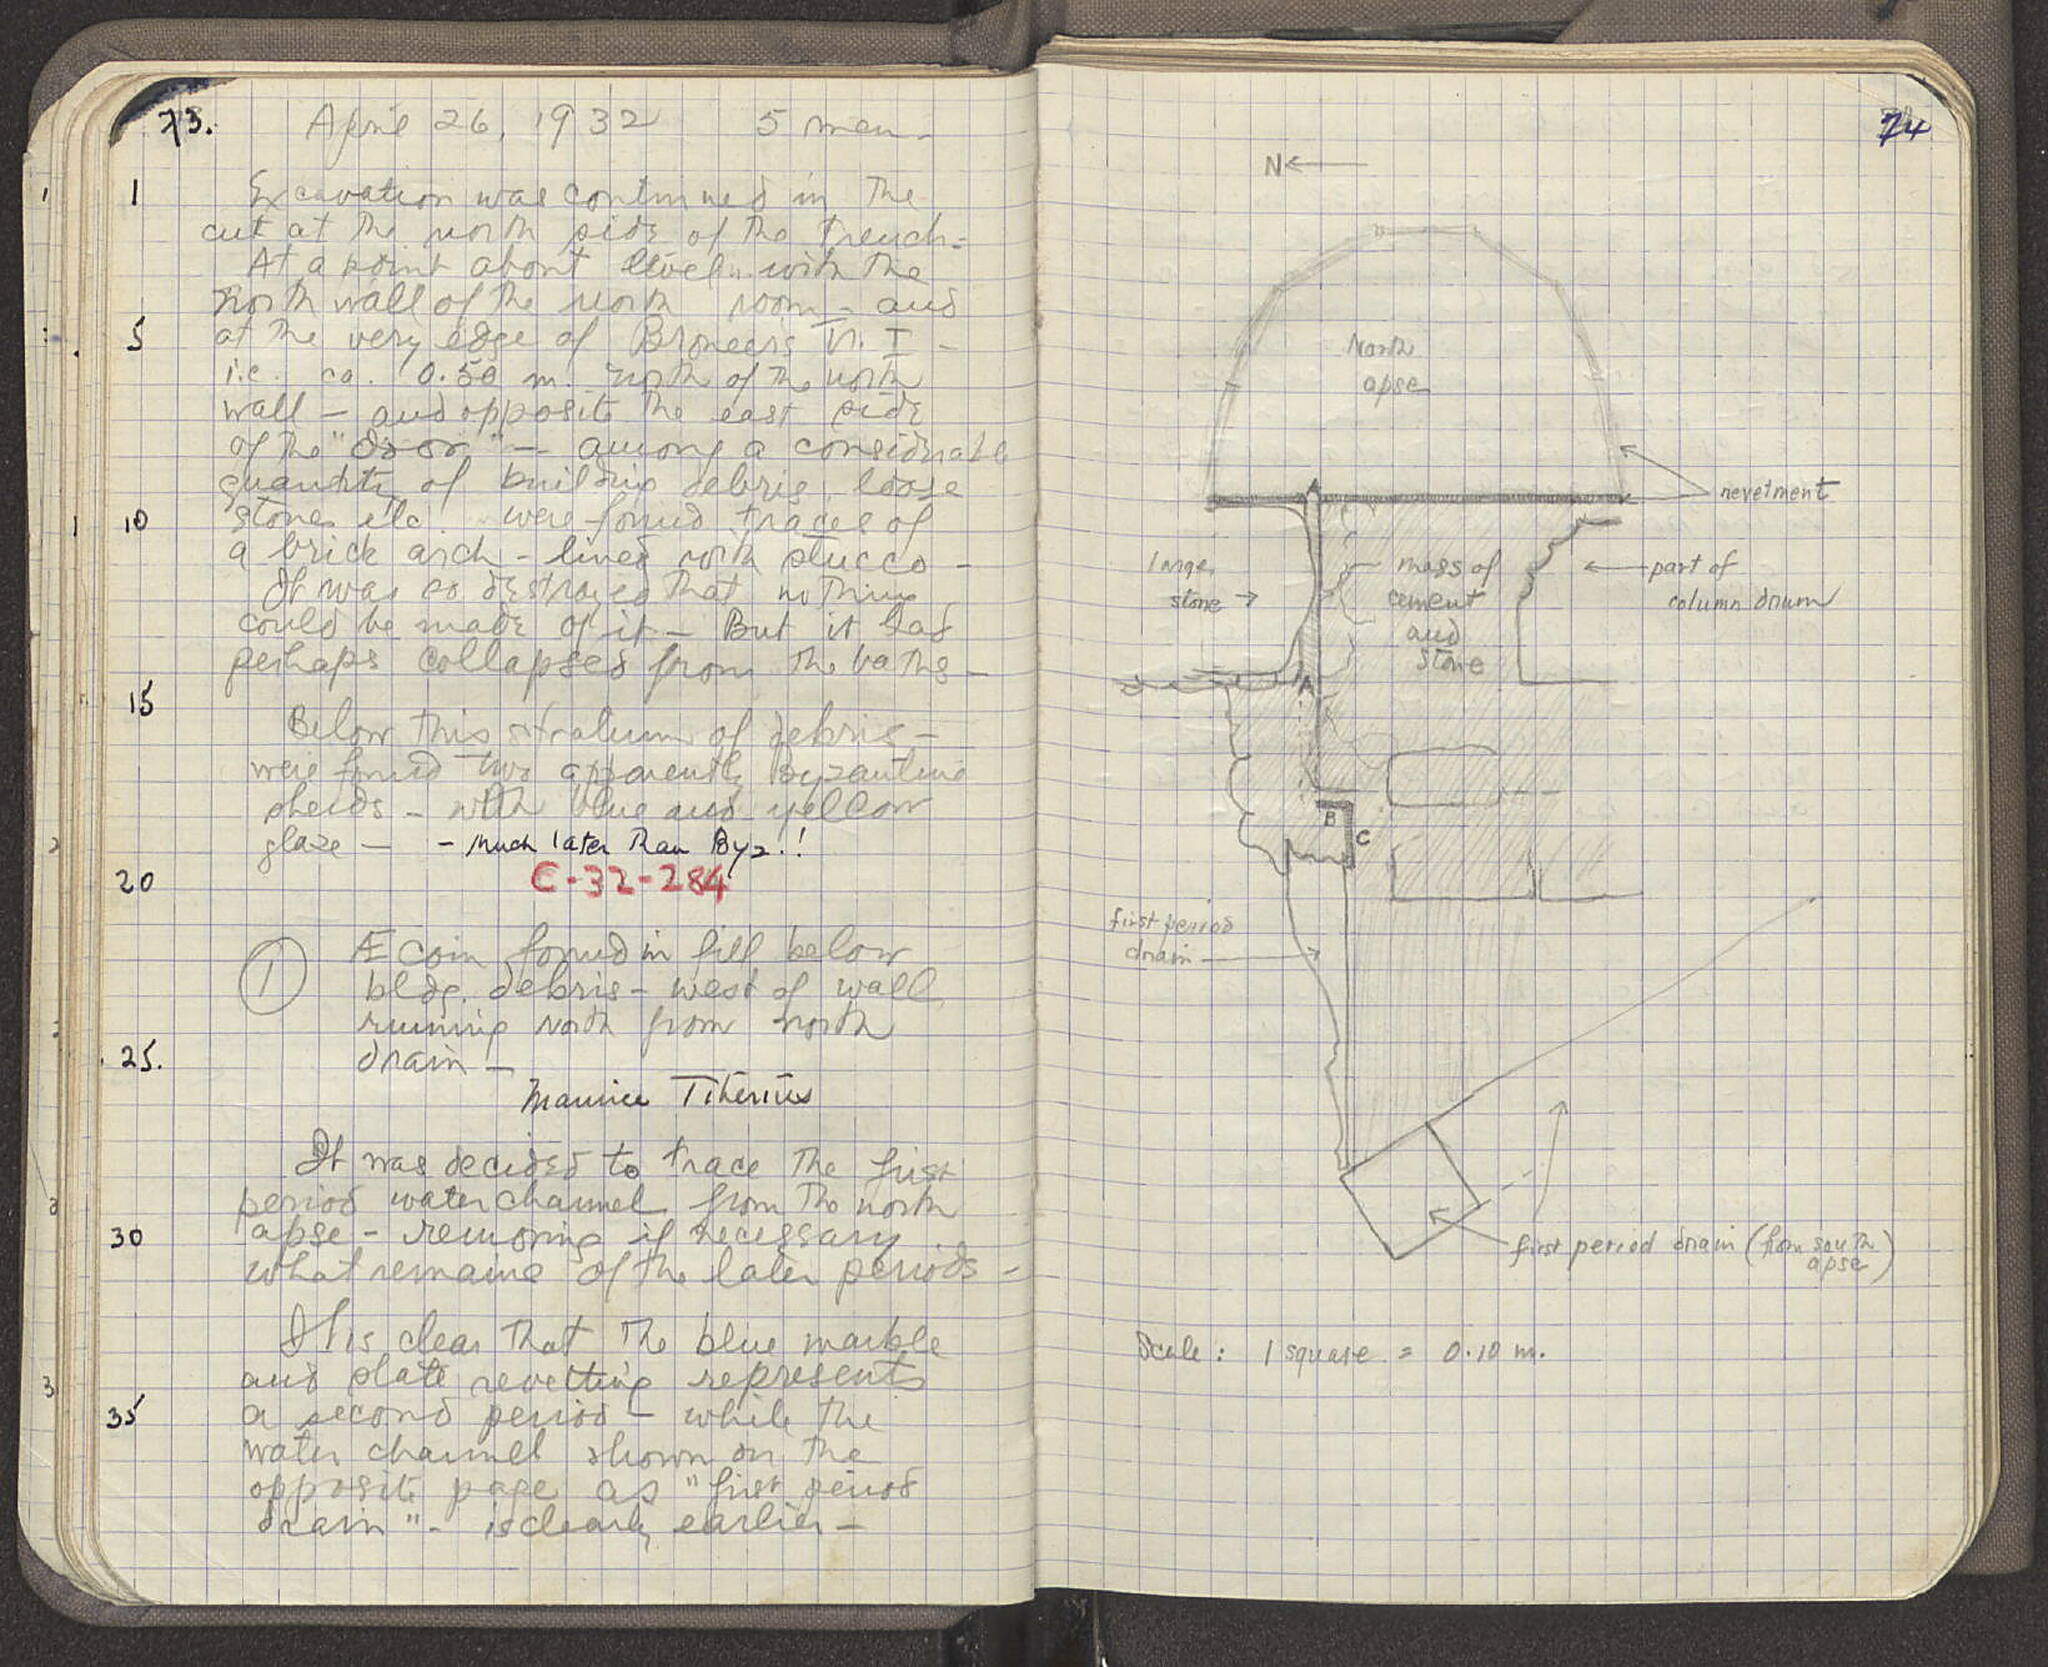 73. April 26, 1932 5 men -
1 Excavation was continued in the
cut at the north side of the trench -
At a point about level with the
north wall of the north room - and
5 at the very edge of Broneer's Tr. I -
i.e. ca. 0.50 m. north of the north
wall - and opposite the east side
of the "door" - among a considerable
quantity of building debris, loose
10 stones etc. were found traces of
a brick arch - lined with stucco -
It was so destroyed that nothing
could be made of it - But it had
perhaps collapsed from the baths -
15
Below this stratum of debris -
were found two apparently Byzantine
sherds - with blue and yellow
glaze - - much later than Byz.!
20 C-32-284
1 Æ coin found in fill below
bldg. debris - west of wall
running north from north
25. drain -
Maurice Tiberius
It was decided to trace the first
period water channel from the north
30 apse - removing if necessary
what remains of the later periods -
It is clear that the blue marble
and plate revetting represents
35 a second period - while the
water channel shown on the
opposite page as "first period
drain" - is clearly earlier -
74
N
North
apse
revetment
large
stone
mass of
cement
and
stone
part of
column drum
A
B
C
first period
drain
first period drain (from south
apse)
Scale: 1 square = 0.10 m.